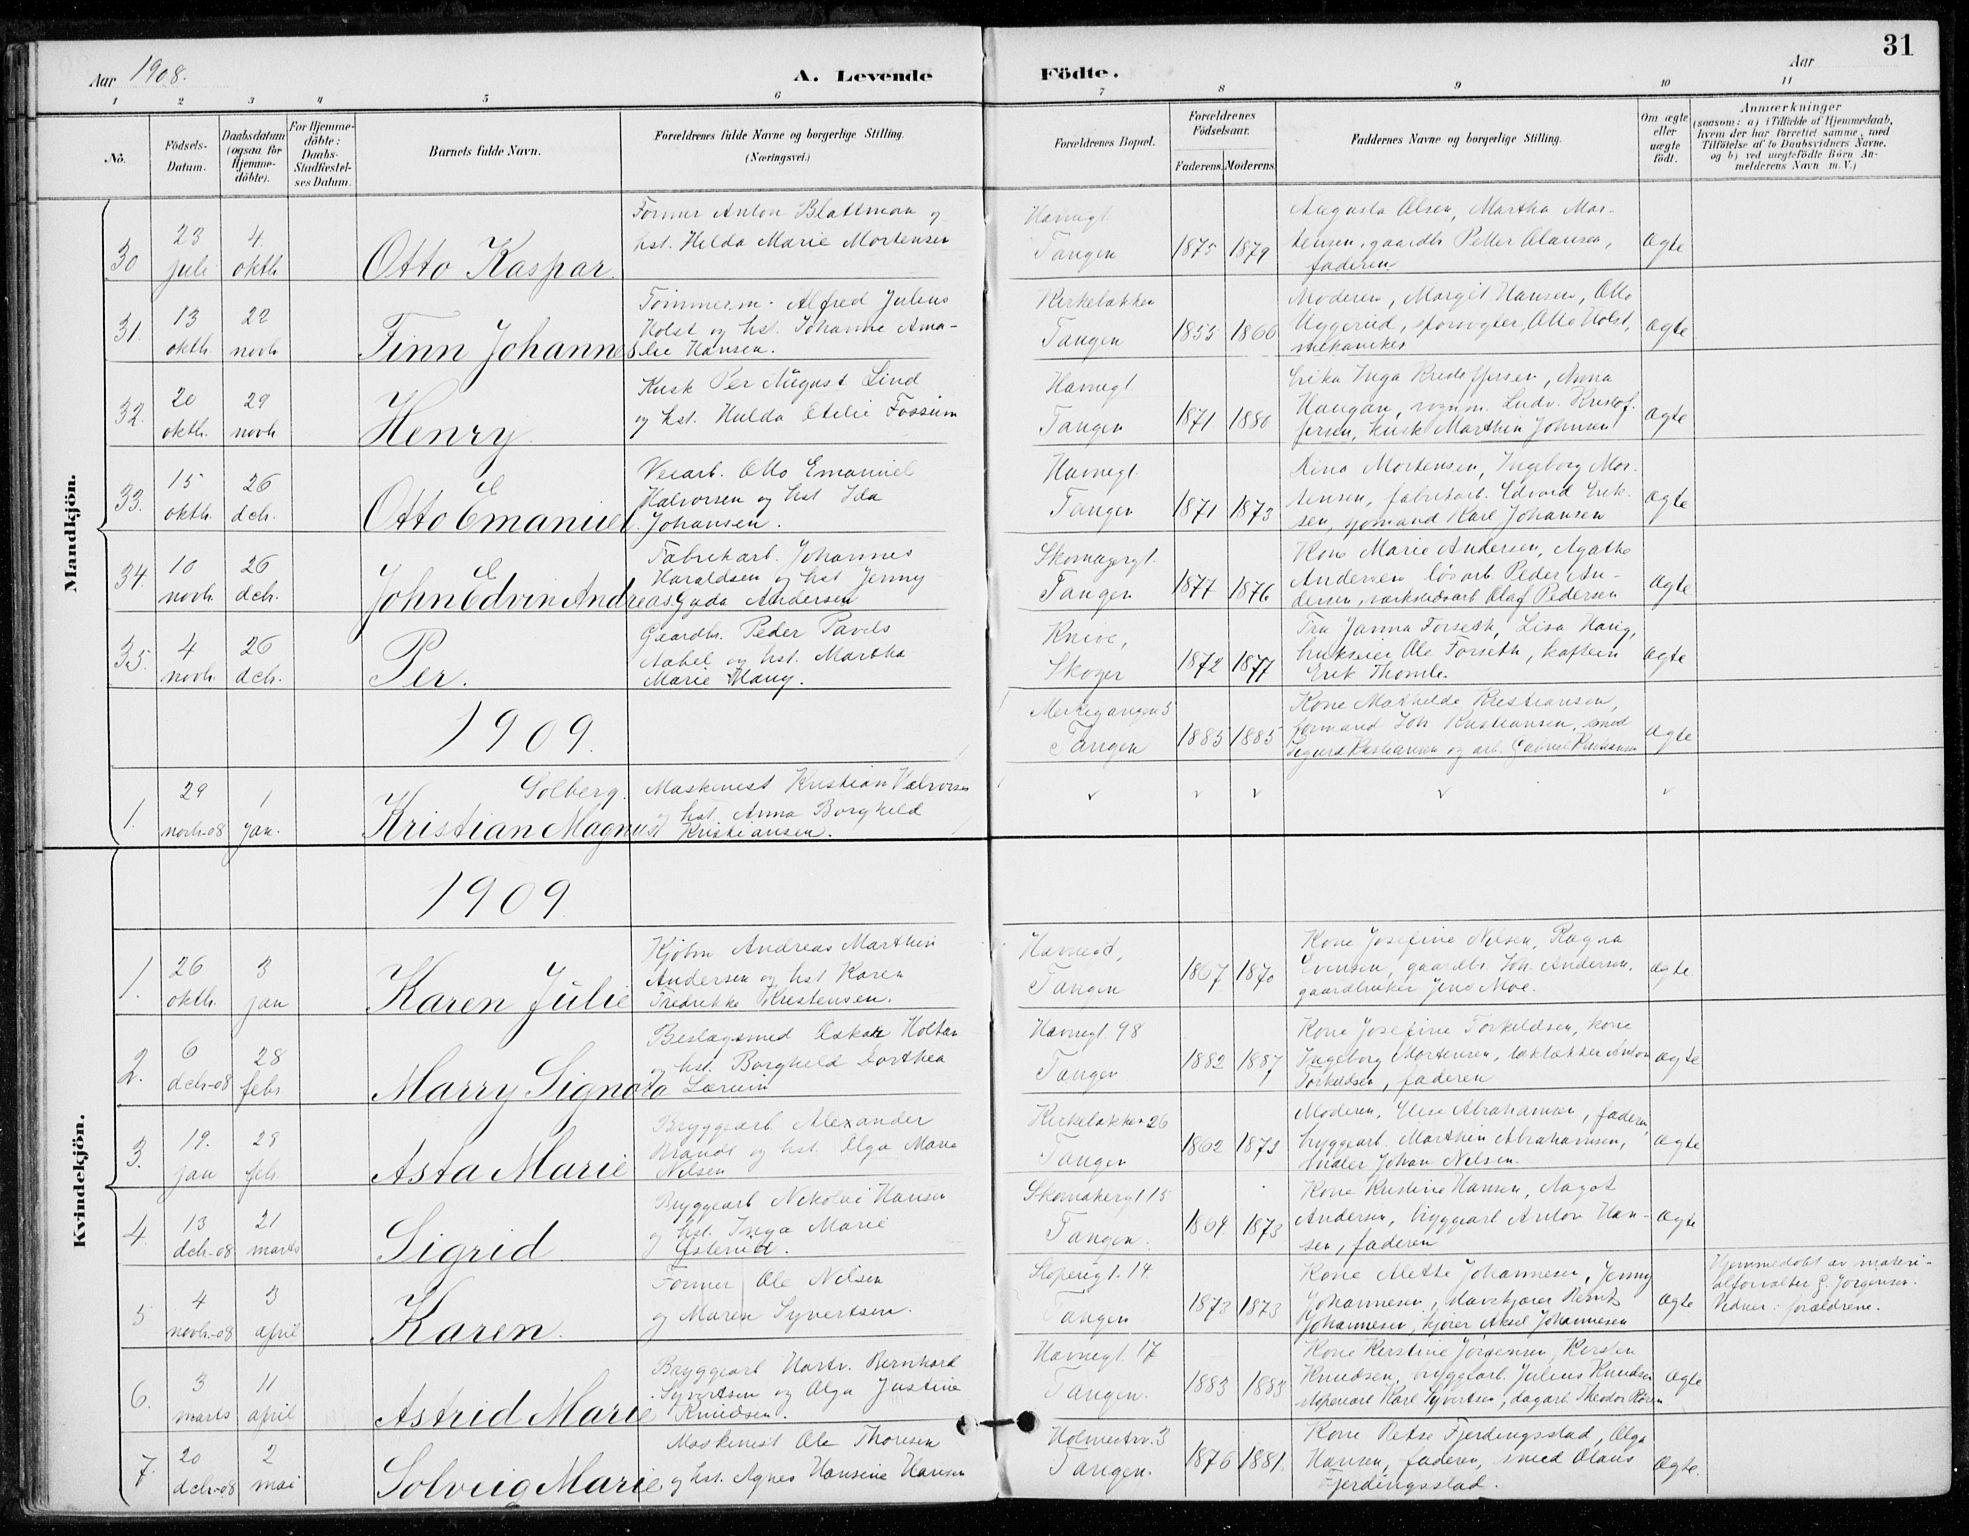 31
Aar 1908.
A. Levende
Födte.
Aar
1 2 3 4 5 6 7 8 9 10 11
No.
Födsels-Datum.
Daabsdatum (ogsaa for Hjemme-döbte).
For Hjemme-döbte: Daabs-Stadfæstel-ses Datum.
Barnets fulde Navn.
Forældrenes fulde Navne og borgerlige Stilling.
(Næringsvei.)
Forældrenes Bopæl.
Forældrenes Födselsaar.
Faderens. Moderens.
Faddernes Navne og borgerlige Stilling.
Om ægte eller uægte födt.
Anmærkninger
(saasom: a) i Tilfælde af Hjemmedaab,
hvem der har forrettet samme, med
Tilföielse af to Daabsvidners Navne.
og b) ved uægtefödte Börn An-
melderens Navn m. V.)
Mandkjön.
30
23 juli
4. oktb.
Otto Kaspar.
Former Anton Blattman og
hst. Hilda Marie Mortensen
Havnegt.
Tangen
1875 1879
Augusta Olsen, Martha Mor-
tensen, gaardbr. Petter Clausen,
faderen
ægte
31.
13 oktb.
22 novb.
Finn Johannes
Tömmerm. Alfred Julius
Holst og hst. Johanne Ama-
lie Hansen.
Kirkeløkken
Tangen
1855 1866
Moderen, Margit Hansen, Otto
Uggerud, sporvogter, Otto Holst,
mekaniker
ægte
32.
20 oktb.
29 novb.
Henry
Kusk Per August Lind
og hst. Hulda Otelie Fossum
Havnegt
Tangen
1871 1880
Erika Inga Kristoffersen, Anna
Haugan, vognm. Ludv. Kristof-
fersen, kusk Marthin Johnsen
ægte
33.
15 oktb.
26 dcb.
Otto Emanuel.
Veiarb. Otto Emanuel
Halvorsen og hst Ida
Johansen.
Havnegt
Tangen
1871 1873
Dina Mortensen, Ingeborg Mor-
tensen, fabrikarb. Edvard Erik-
sen, sjömand Karl Johansen
ægte
34.
10 novb.
26 dcb.
John Edvin Andreas.
Fabrikarb. Johannes
Haraldsen og hst Jenny
Gyda Andersen
Skomagergt.
Tangen
1877 1876
Kone Marie Andersen, Agathe
Andersen løsarb. Peder An-
dersen, verkstedsarb Olaf Pedersen
ægte
35.
4 novb.
26 dcb.
Per.
Gaardbr. Peder Pavels
Aabel og hst. Martha
Marie Haug.
Knive,
Skoger
1872 1877
Fru Janna Forseth, Lisa Haug,
brukseier Ole Forseth, kaptein
Erik Thomle.
ægte
1909.
Merkegangen 5
Tangen
1885 1885
Kone Mathilde Kristiansen,
formand Joh Kristiansen, smed
Sigurd Kristiansen og arb. Gabriel Kristiansen
ægte
1.
29 novb-08
1 jan.
Solberg.
Kristian Magnus
Maskinist Kristian Halvorsen
og hst. Anna Borghild
Kristiansen.
Kvindekjön.
1909
1.
26 oktb.
3 jan
Karen Julie
Kjøbm Andreas Marthin
Andersen og hst Karen
Fredrikke Kristensen.
Havnegd,
Tangen
1867 1870
Kone Josefine Nilsen, Ragna
Evensen, gaardbr. Joh. Andersen,
gaardbruker Jens Moe.
ægte
2.
6 dcb-08
28 febr
Marry Signora
Beslagsmed Oskar Holtan
og hst. Borghild Dorthea
Lærum
Havnegt 98
Tangen
1882 1887
Kone Josefine Torkildsen, kone
Ingeborg Mortensen, taktækker Anton
Torkildsen, faderen
ægte
3.
19. jan
28 feb.
Asta Marie
Bryggearb Alexander
Brandt og hst. Olga Marie
Nilsen
Kirkeløkken 26
Tangen
1862 1873
Moderen, Elise Abrahamsen, faderen,
bryggearb. Marthin Abrahamsen,
Johan Nilsen.
ægte
4.
13 dcb-08
21 marts
Sigrid
Bryggearb Nikolai Hansen
og hst. Inga Marie
Østerud.
Skomakergt 15
Tangen.
1864 1873
Kone Kristine Hansen, Aagot
Andersen, bryggearb Anton Han-
sen, faderen
ægte
5
4 novb-08
3 april
Karen.
Former Ole Nilsen
og Maren Syvertsen.
Støperigt. 14
Tangen
1873 1873
Kone Alette Johannesen, Jenny
Johannesen, Bernts
Johannesen, kjører Aksel Johannesen
ægte
Hjemmedøbt av materi-
alforvalter G. Jørgensen.
Vidner: forældrene.
6.
3 marts
11 april
Astrid Marie
Bryggearb Hartv. Bernhard
Syvertsen og Olga Justine
Knudsen.
Havnegt. 17
Tangen.
1883 1883
Kone Kirstine Jørgensen, Kirsten
Knudsen, bryggearb. Julius Knudsen
støperiarb Karl Syvertsen, dagarb. Theodor Røren
ægte
7.
20 dcb-08
2 mai
Solveig Marie
Maskinist Ole Thoresen
og hst. Agnes Hansine Hansen
Holmestrv. 3
Tangen.
1876 1881.
Kone Petra Fjerdingsstad, Olga
Hansen, faderen, smed Olaus
Fjerdingsstad.
ægte.